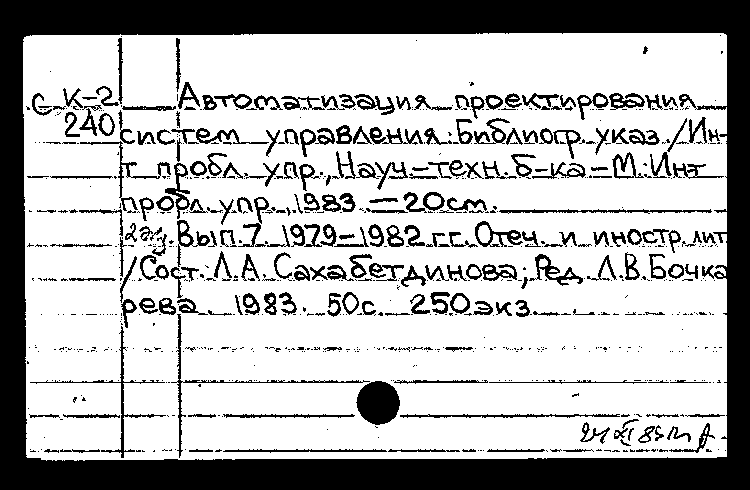 с К-2 Автоматизация проектирования
240 систем управления: Библиогр. указ. / Ин-
т пробл. упр., Науч-техн. б-ка – М.: Инт
пробл. упр., 1983. – 20см.
2экз. Вып. 7 1979-1982 гг. Отеч. и иностр. лит
/ Сост. Л.А. Сахабетдинова; Ред. Л.В. Бочка
рева. 1983. 50с. 250экз.